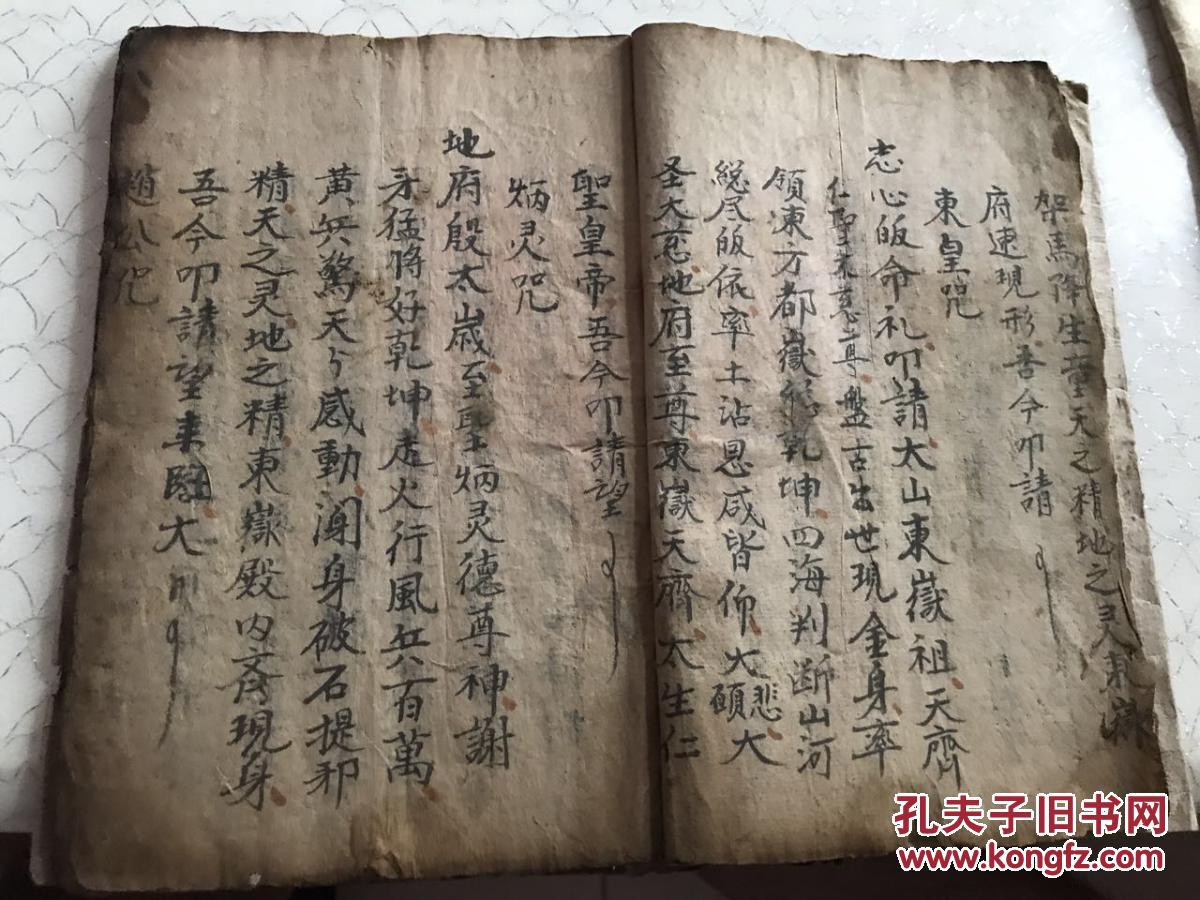 架馬降生童天之精地之灵東嶽
府速現形吾今叩請
東皇咒
志心皈命礼叩請大山東嶽祖天齊
仁聖 慈尊盤古出世現金身率
領東方都嶽 乾坤四海判断山河
総尽皈依率土沾恩咸皆仰大悲大願大
圣大慈地府至尊東嶽天齊太生仁
聖皇帝吾今叩請望
炳灵咒
地府殷太歳至聖炳灵德尊神謝
牙猛将好乾坤走火行風兵百萬
黄兵驚天々感動 身破石提邪
精天之灵地之精東嶽殿内 現身
吾今叩請望来臨大
趙公咒
孔夫子旧书网
www.kongfz.com